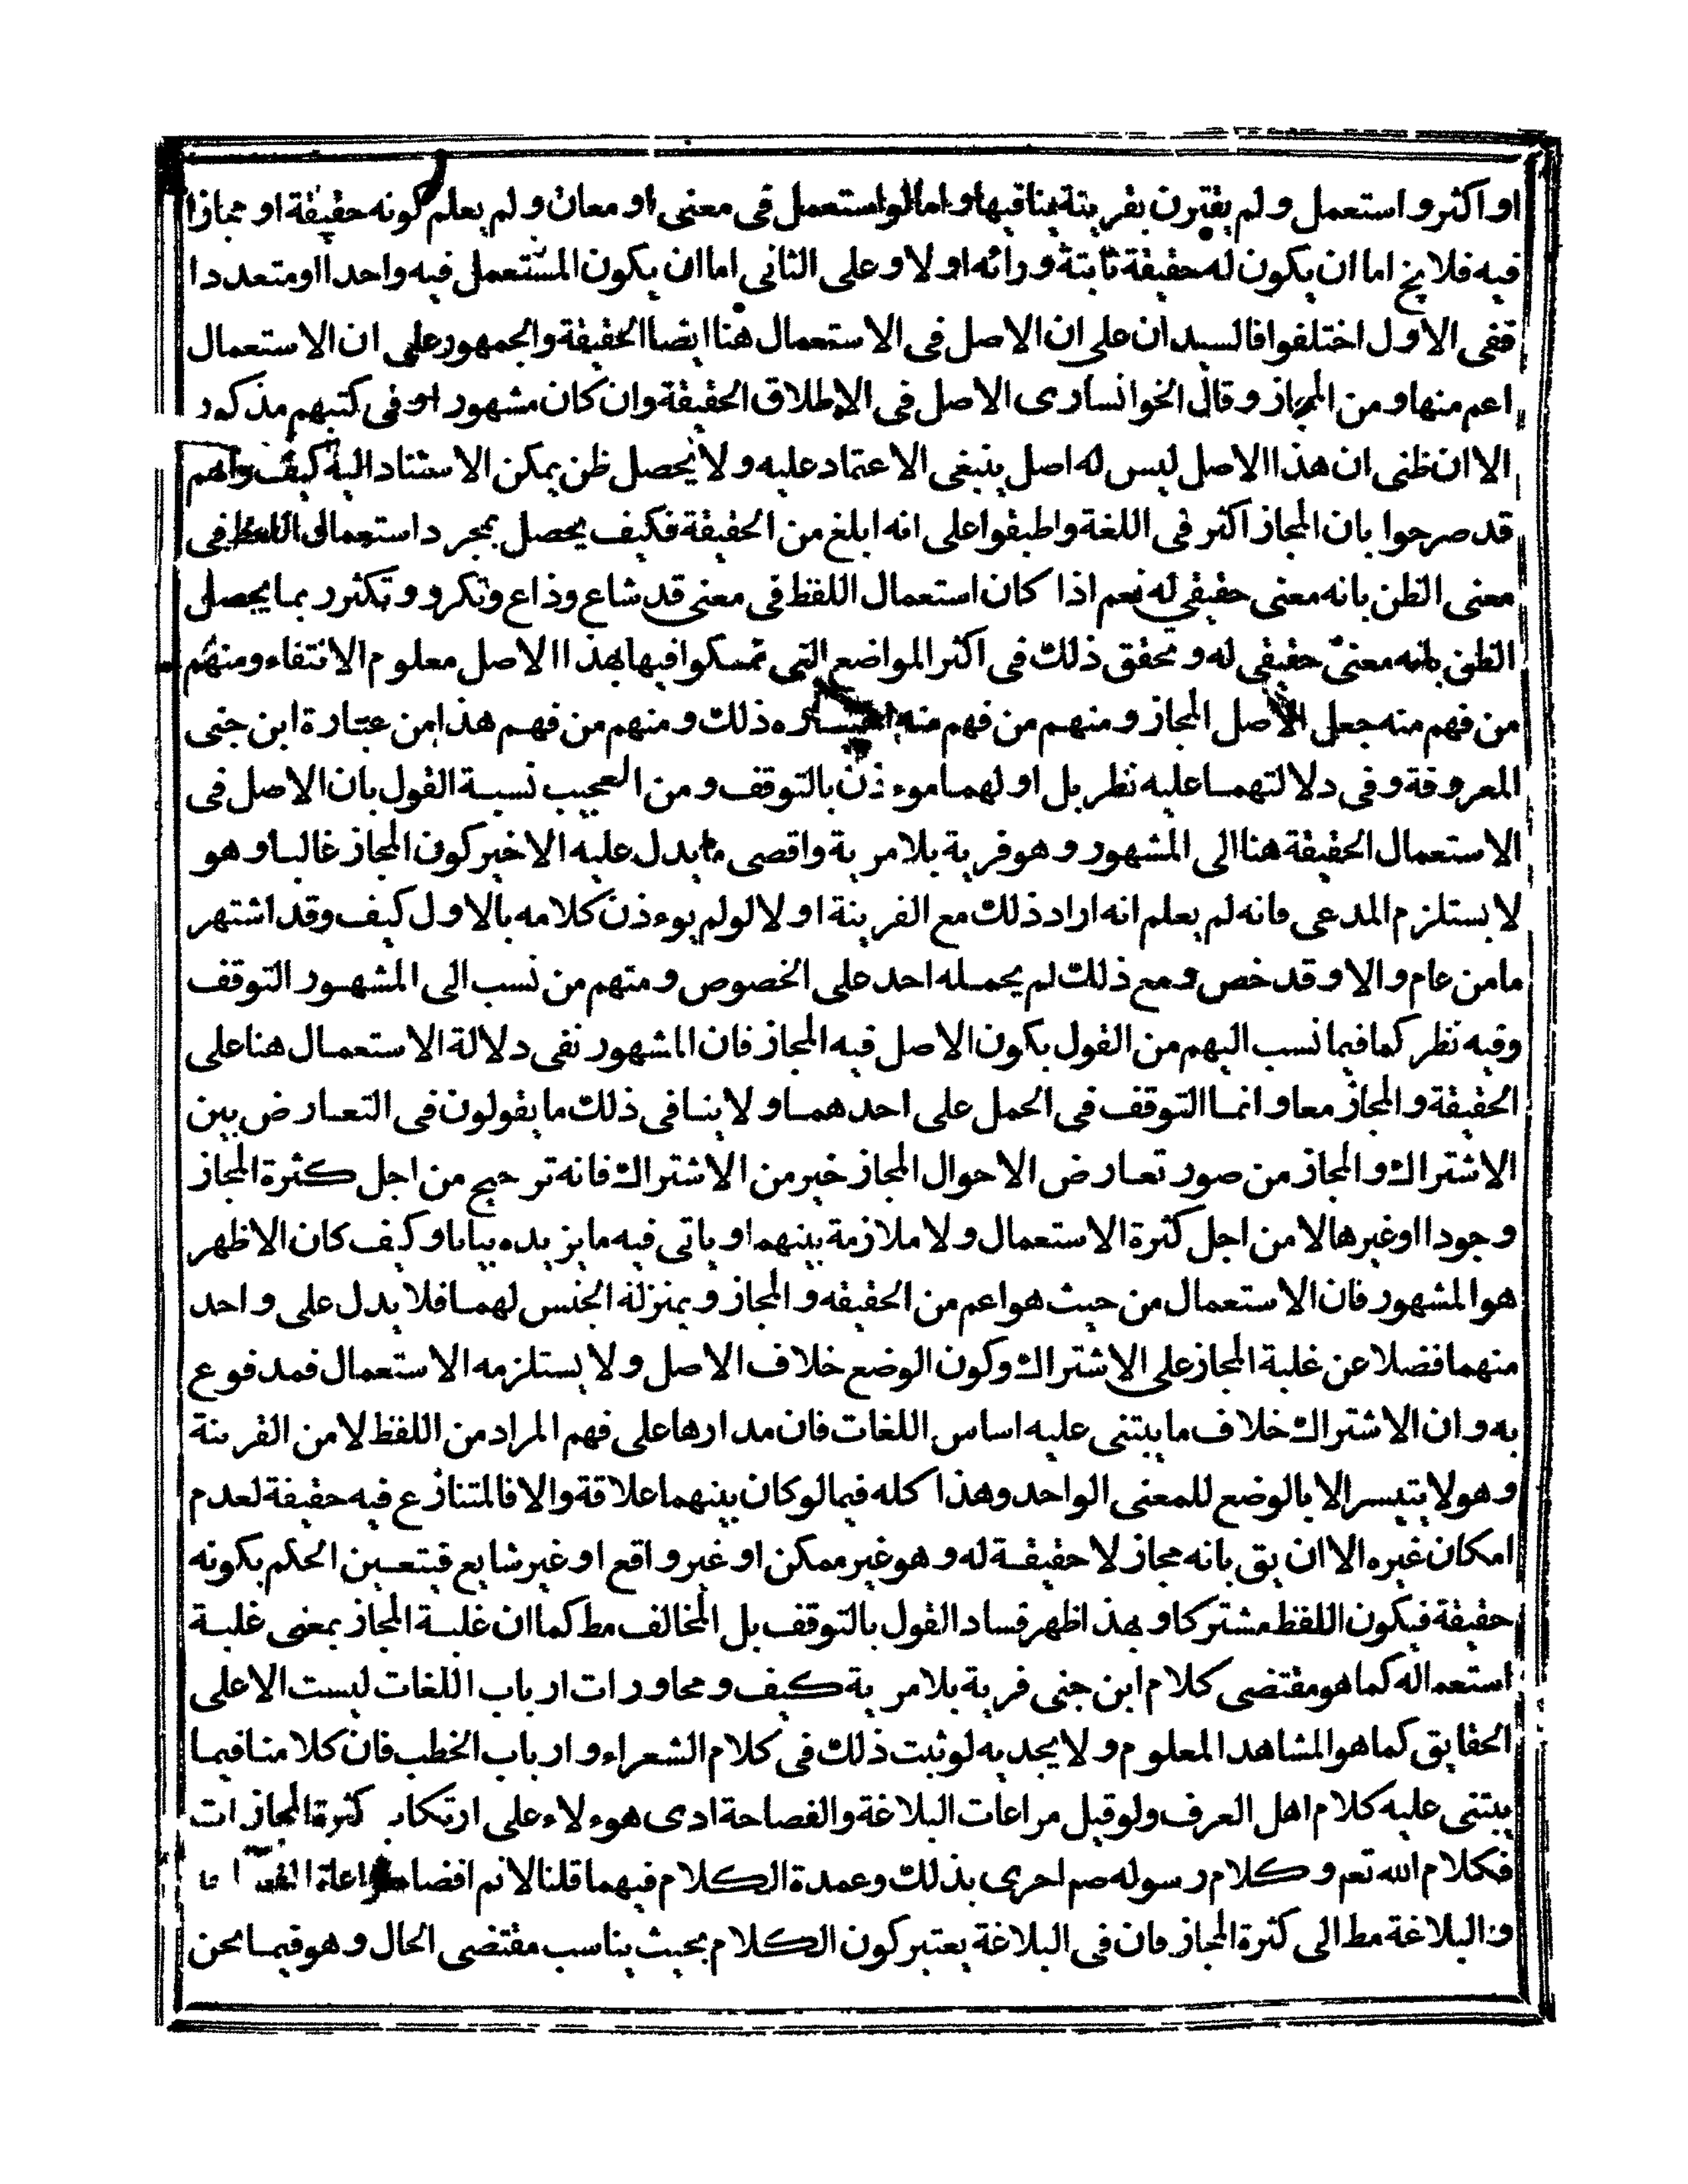 او اكثر و استعمل و لم يقترن بقرينة ينافيها و اما لو استعمل فى معنى او معان و لم يعلم كونه حقيقة او مجازا
فيه فلا يخ اما ان يكون له حقيقة ثابتة ورائه او لا و على الثانى اما ان يكون المستعمل فيه واحدا او متعددا
ففى الاول اختلفوا فالسيدان على ان الاصل فى الاستعمال هنا ايضا الحقيقة والجمهور على ان الاستعمال
اعم منها و من المجاز و قال الخوانسارى الاصل فى الاطلاق الحقيقة وان كان مشهورا و فى كتبهم مذكور
الا ان ظنى ان هذا الاصل ليس له اصل ينبغى الاعتماد عليه و لا يحصل ظن يمكن الاستناد اليه كيف وانهم
قد صرحوا بان المجاز اكثر فى اللغة و اطبقوا على انه ابلغ من الحقيقة فكيف يحصل بمجرد استعمال اللفظ فى
معنى الظن بانه معنى حقيقى له نعم اذا كان استعمال اللفظ فى معنى قد شاع وذاع وتكرر و تكثر ربما يحصل
الظن بانه معنى حقيقى له و تحقق ذلك فى اكثر المواضع التى تمسكوا فيها بهذا الاصل معلوم الانتفاء ومنهم
من فهم منه جعل الاصل المجاز و منهم من فهم منه ذلك و منهم من فهم هذا من عبارة ابن جنى
المعروفة و فى دلالتهما عليه نظر بل اولهما موءذن بالتوقف و من العجيب نسبة القول بان الاصل فى
الاستعمال الحقيقة هنا الى المشهور و هو فرية بلا مرية واقصى ما يدل عليه الاخير كون المجاز غالبا و هو
لا يستلزم المدعى فانه لم يعلم انه اراد ذلك مع القرينة او لا لو لم يوءذن كلامه بالاول كيف وقد اشتهر
ما من عام و الا و قد خص و مع ذلك لم يحمله احد على الخصوص و منهم من نسب الى المشهور التوقف
وفيه نظر كما فيما نسب اليهم من القول بكون الاصل فيه المجاز فان المشهور نفى دلالة الاستعمال هنا على
الحقيقة و المجاز معا و انما التوقف فى الحمل على احدهما و لا ينافى ذلك ما يقولون فى التعارض بين
الاشتراك و المجاز من صور تعارض الاحوال المجاز خير من الاشتراك فانه ترجيح من اجل كثرة المجاز
وجودا او غيرها لا من اجل كثرة الاستعمال و لا ملازمة بينهما و ياتى فيه ما يزيده بيانا و كيف كان الاظهر
هو المشهور فان الاستعمال من حيث هو اعم من الحقيقه و المجاز و بمنزلة الجنس لهما فلا يدل على واحد
منهما فضلا عن غلبة المجاز على الاشتراك وكون الوضع خلاف الاصل و لا يستلزمه الاستعمال فمدفوع
به و ان الاشتراك خلاف ما يبتنى عليه اساس اللغات فان مدارها على فهم المراد من اللفظ لا من القرينة
و هو لا يتيسر الا بالوضع للمعنى الواحد وهذا كله فيما لو كان بينهما علاقة والا فالمتنازع فيه حقيقة لعدم
امكان غيره الا ان يق بانه مجاز لا حقيقة له و هو غير ممكن او غير واقع او غير شايع فيتعين الحكم بكونه
حقيقة فيكون اللفظ مشتركا و بهذا ظهر فساد القول بالتوقف بل المخالف مط كما ان غلبة المجاز بمعنى غلبة
استعماله كما هو مقتضى كلام ابن جنى فرية بلا مرية كيف و محاورات ارباب اللغات ليست الا على
الحقايق كما هو المشاهد المعلوم و لا يجديه لو ثبت ذلك فى كلام الشعراء و ارباب الخطب فان كلامنا فيما
يبتنى عليه كلام اهل العرف ولو قيل مراعات البلاغة والفصاحة ادى هوءلاء على ارتكاب كثرة المجازات
فكلام الله تعم و كلام رسوله صم احرى بذلك و عمدة الكلام فيهما قلنا لا نم افضا
والبلاغة مط الى كثرة المجاز فان فى البلاغة يعتبر كون الكلام بحيث يناسب مقتضى الحال و هو فيما نحن